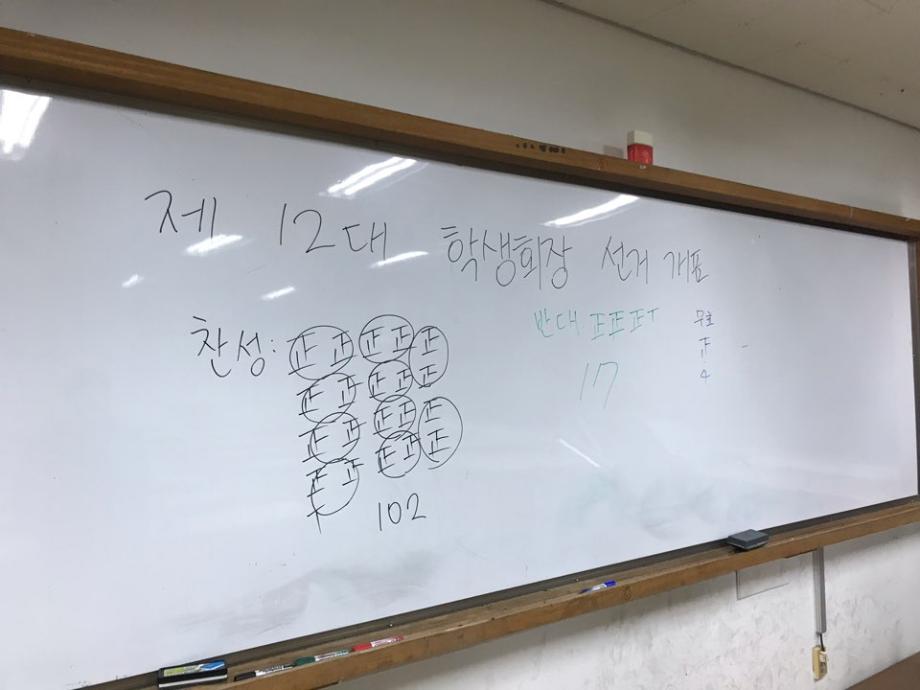 제 12대 학생회장 선거 개표
찬성: 正 正 正 正 正
正 正 正 正 正
正 正 正 正 正
正 正 正 正 正
ㅜ 102
반대 正 正 正 ㅜ
17
무효
正
4